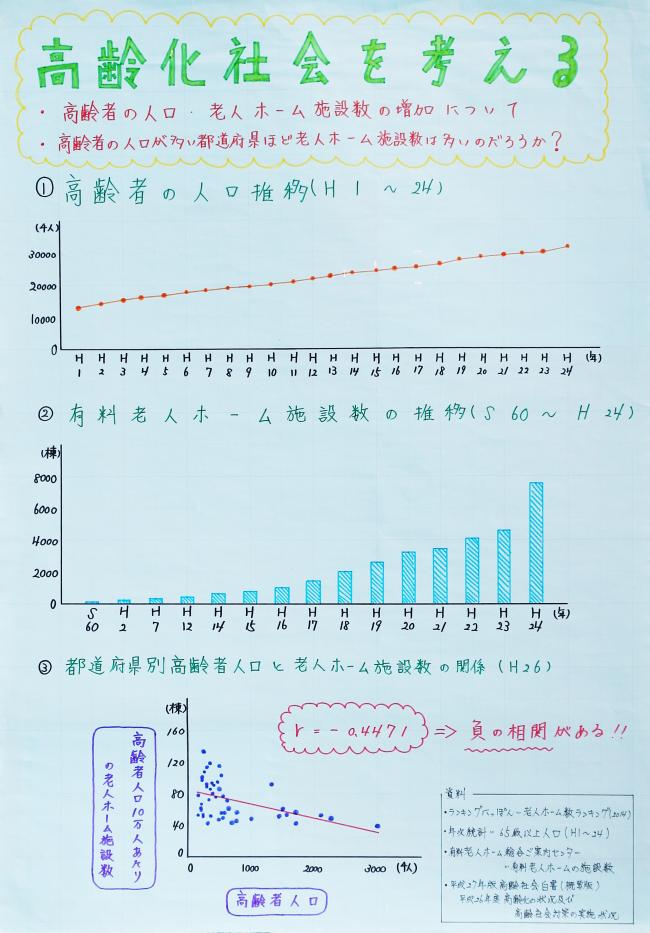 高齢化社会を考える
・高齢者の人口・老人ホーム施設数の増加について
・高齢者の人口が多い都道府県ほど老人ホーム施設数は多いのだろうか?
① 高齢者の人口推移(H1~24)
(千人)
30000
20000
10000
0
H H H H H H H H H H H H H H H H H H H H H H H H (年)
1 2 3 4 5 6 7 8 9 10 11 12 13 14 15 16 17 18 19 20 21 22 23 24
② 有料老人ホーム施設数の推移(S60~H24)
(棟)
8000
6000
4000
2000
0
S H H H H H H H H H H H H H H (年)
60 2 7 12 14 15 16 17 18 19 20 21 22 23 24
③ 都道府県別高齢者人口と老人ホーム施設数の関係(H26)
(棟)
160
120
80
40
0
0 1000 2000 3000 (千人)
高齢者人口10万人あたり
の老人ホーム施設数
高齢者人口
r=-0.4471 => 負の相関がある!!
資料
・年次統計-65歳以上人口(H1~24)
-有料老人ホームの施設数
・平成27年版高齢社会白書(概要版)
平成26年度 高齢化の状況及び
高齢社会対策の実施状況